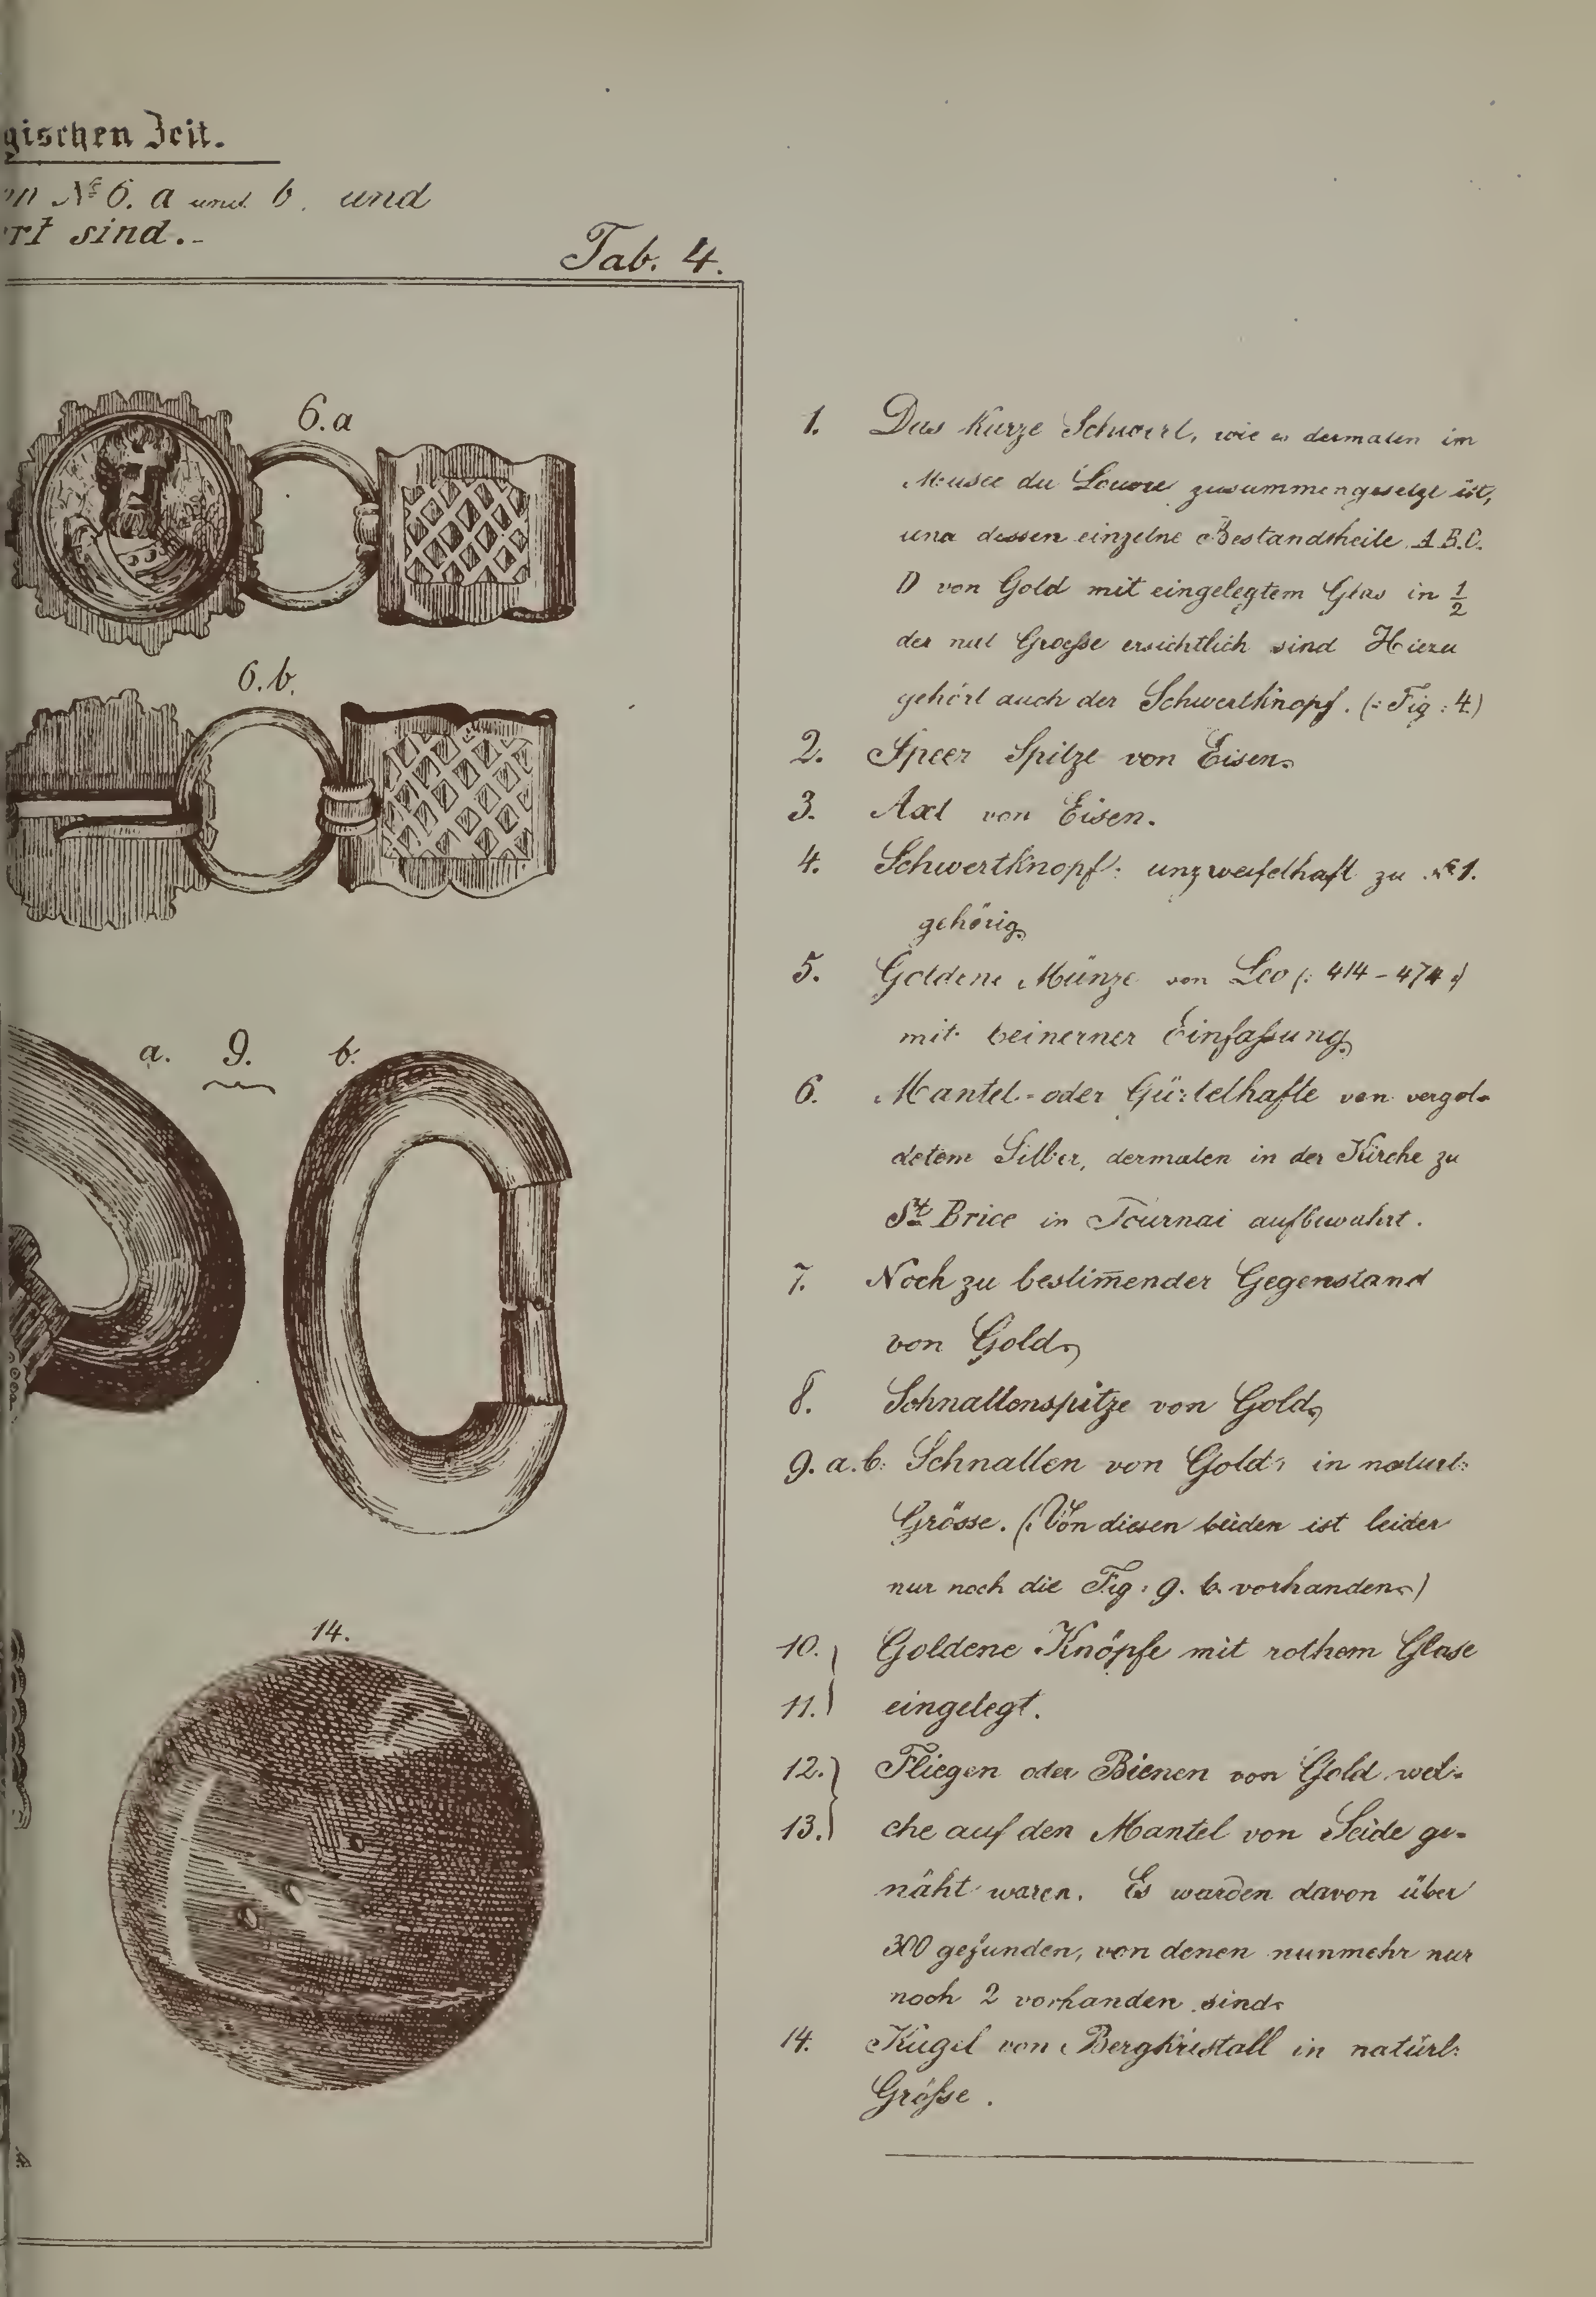 gischen Zeit.
№ 6. a und b. und
rt sind.
Tab. 4.
6.a
6.b.
a. 9. b.
14.
1. Das kurze Schwert, wie es dermalen im
Musee du Louvre zusammengesetzt ist,
und dessen einzelne Bestandtheile A B.C.
D von Gold mit eingelegtem Glas in 1/2
der nat Groeße ersichtlich sind Hiezu
gehört auch der Schwertknopf. (: Fig : 4)
2. Speer Spitze von Eisen.
3. Axt von Eisen.
4. Schwertknopf: unzweifelhaft zu № 1.
gehörig.
5. Goldene Münze von Leo (: 414 - 474 :)
mit beinerner Einfaßung.
6. Mantel - oder Gürtelhafte von vergol-
detem Silber, dermalen in der Kirche zu
St Brice in Tournai aufbewahrt.
7. Noch zu bestim̅ender Gegenstand
von Gold.
8. Schnallenspitze von Gold.
9. a. b: Schnallen von Gold, in naturl:
Grösse. (: Von diesen beiden ist leider
nur noch die Fig : 9. b. vorhanden.)
10. Goldene Knöpfe mit rothem Glase
11. eingelegt.
12. Fliegen oder Bienen von Gold wel-
13. che auf den Mantel von Seide ge-
näht waren. Es warden davon über
300 gefunden, von denen nunmehr nur
noch 2 vorhanden sind.
14. Kugel von Bergkristall in natürl:
Größe.